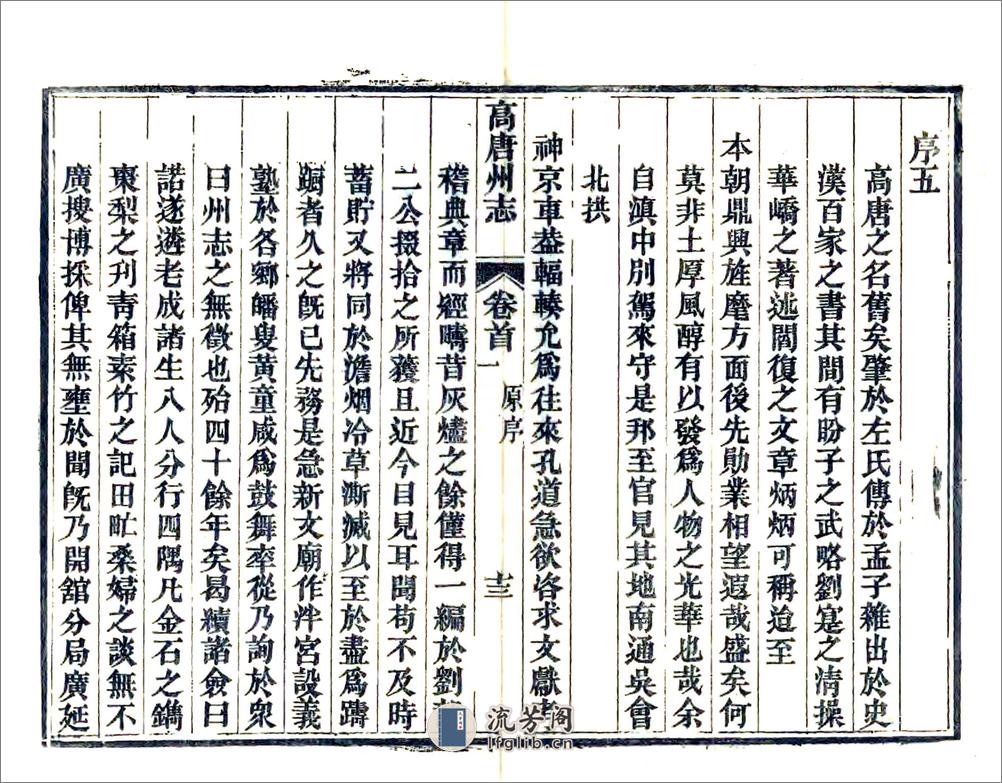 序五
高唐之名舊矣肇於左氏傳於孟子雜出於史
漢百家之書其間有盼子之武略劉寔之清操
華嶠之著述閻復之文章炳炳可稱迨至
本朝鼎興旌麾方面後先勛業相望遐哉盛矣何
莫非土厚風醇有以發爲人物之光華也哉余
自滇中別駕來守是邦至官見其地南通吳會
北拱
神京車葢輻輳允爲往來孔道急欲咨求文獻
高唐州志
卷首一
原序
十三
稽典章而經疇昔灰燼之餘僅得一編於劉
二公掇拾之所獲且近今目見耳聞苟不及時
蓄貯又將同於澹烟冷草澌滅以至於盡爲躊
躕者久之旣已先務是急新文廟作泮宮設義
塾於各鄉皤叟黃童咸爲鼓舞率從乃詢於衆
曰州志之無徵也殆四十餘年矣曷續諸僉曰
諾遂遴老成諸生八人分行四隅凡金石之鐫
棗梨之刋靑箱素竹之記田畯桑婦之談無不
廣搜博採俾其無壅於聞旣乃開舘分局廣延
流芳阁
lfglib.cn